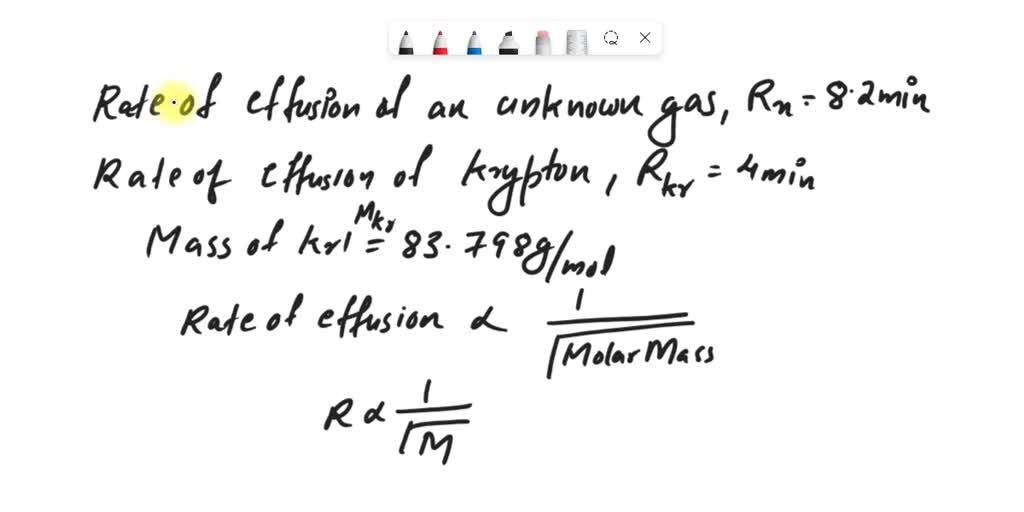 Rate of effusion of an unknown gas, Rn = 8.2min
Rate of effusion of krypton, Rkr = 4min
Mass of kr Mkr = 83.798g/mol
Rate of effusion ∝ 1/√Molar Mass
R ∝ 1/√M